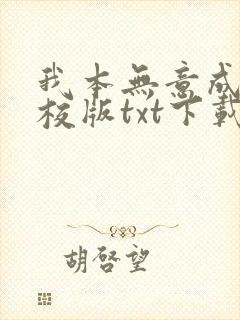 我本無意成
校版txt下載
胡啓望